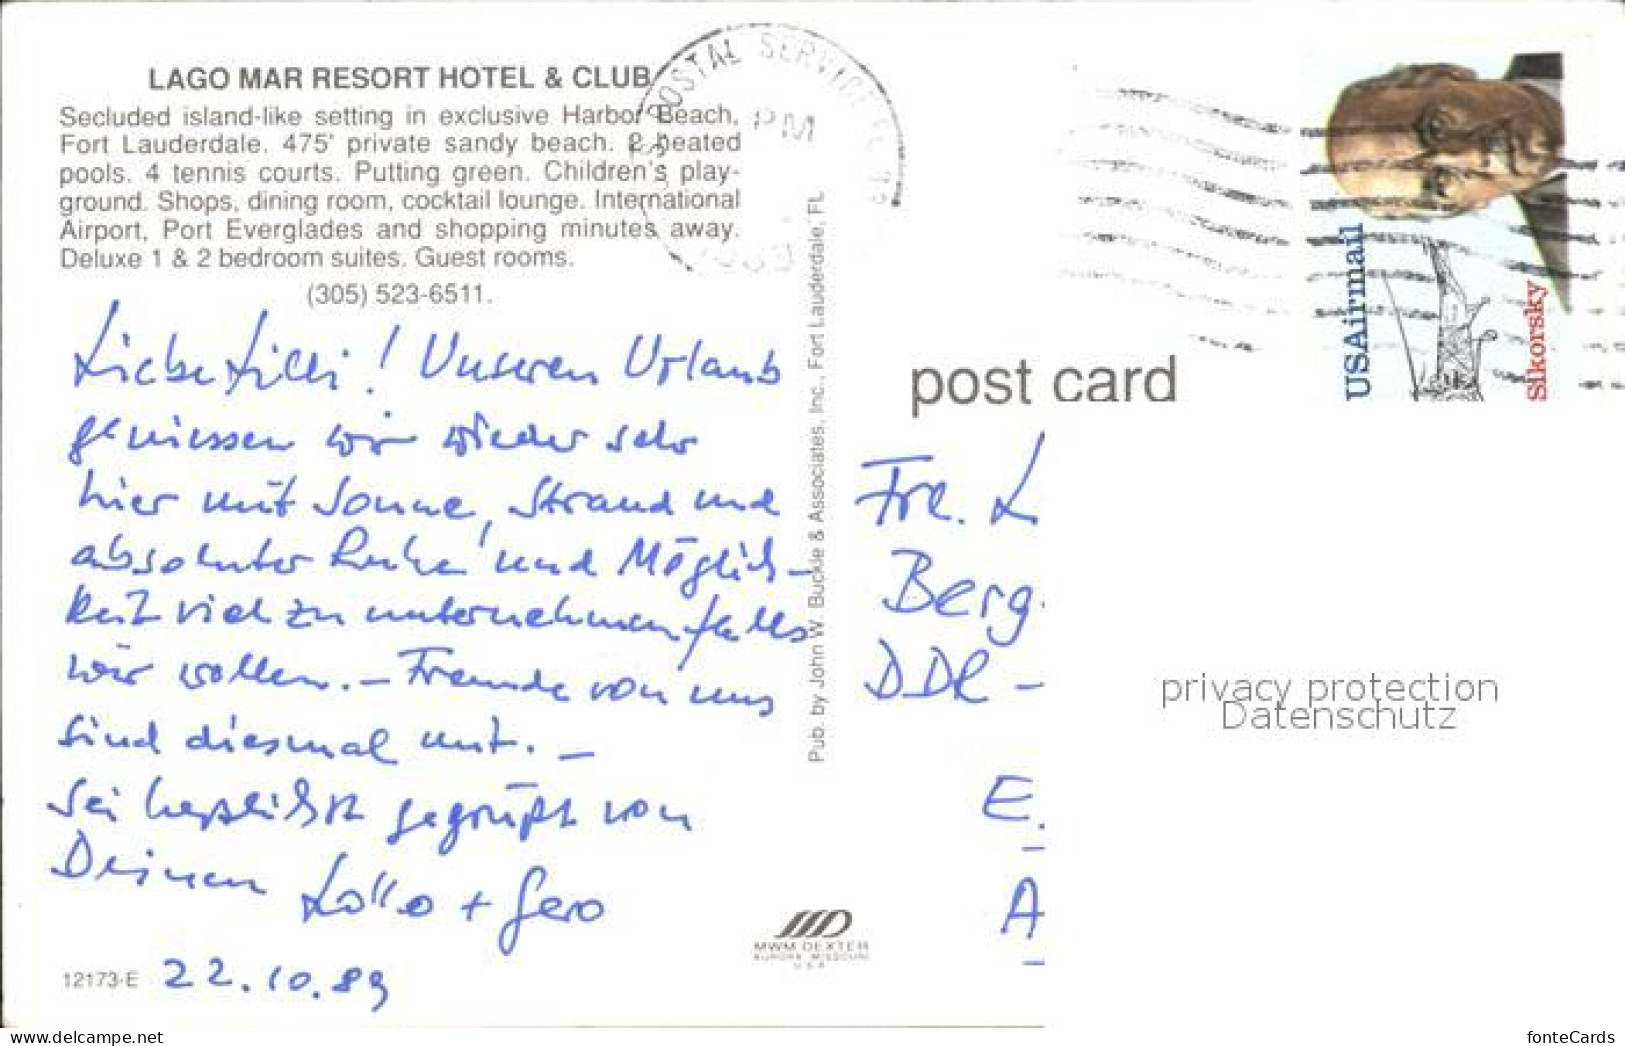 LAGO MAR RESORT HOTEL & CLUB
Secluded island-like setting in exclusive Harbor Beach,
Fort Lauderdale. 475' private sandy beach. 2 heated
pools. 4 tennis courts. Putting green. Children's play-
ground. Shops, dining room, cocktail lounge. International
Airport, Port Everglades and shopping minutes away.
Deluxe 1 & 2 bedroom suites. Guest rooms.
(305) 523-6511.
Liebe Lilli! Unseren Urlaub
geniessen wir wieder sehr
hier mit Sonne, Strand und
absoluter Ruhe und Möglich-
keit viel zu unternehmen falls
wir wollen. – Freunde von uns
sind diesmal mit. –
Sei herzlichst gegrüßt von
Deinen Lollo + Gero
12173-E 22.10.89
Pub. by John W. Buckle & Associates, Inc., Fort Lauderdale, FL
MWM DEXTER
AURORA, MISSOURI
USA
POSTAL SERVICE
PM
USAirmail
Sikorsky
post card
Frl. L
Berg
DDR -
E.
A
privacy protection
Datenschutz
www.delcampe.net
fonteCards